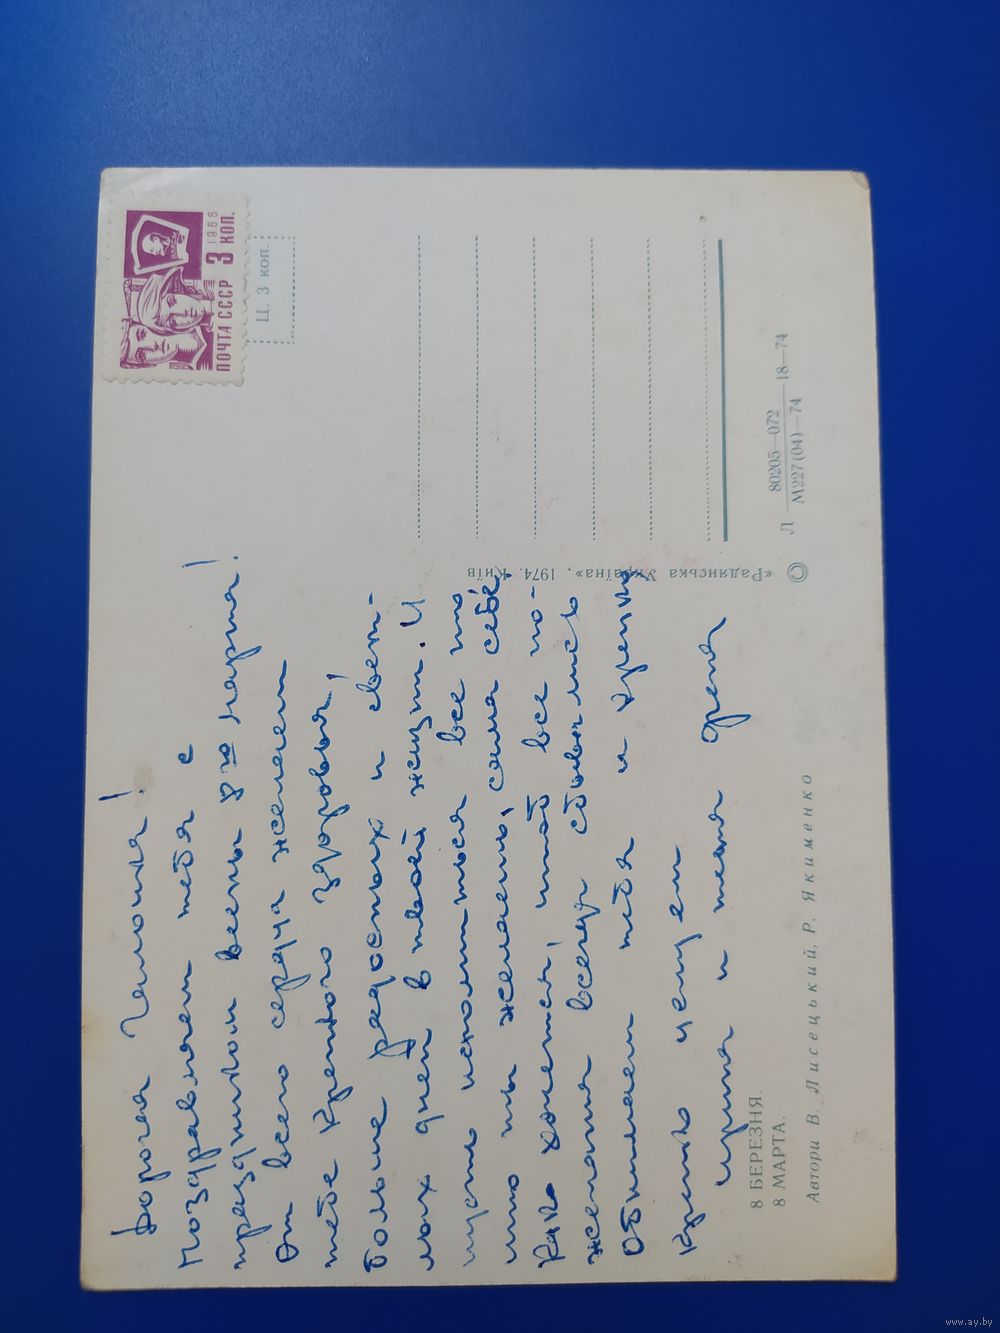 Дорогая !
Поздравляем тебя с
праздником весны 8го марта!
От всего сердца желаем
тебе крепкого здоровья,
больше радостных и свет-
лых дней в твоей жизни. И
пусть исполнится все что
что ты желаешь сама себе,
как хочется, чтоб все по-
желания всегда сбывались
Обнимаем тебя и крепко
крепко целуем
и твоя
8 БЕРЕЗНЯ.
8 МАРТА.
Автори В. Лисецький, Р. Якименко
ПОЧТА СССР 3 КОП.
1966
ВЛКСМ
Ц. 3 коп.
© «Радянська Україна», 1974. Київ
Л 80205—072 18—74
М227(04)—74
www.ay.by